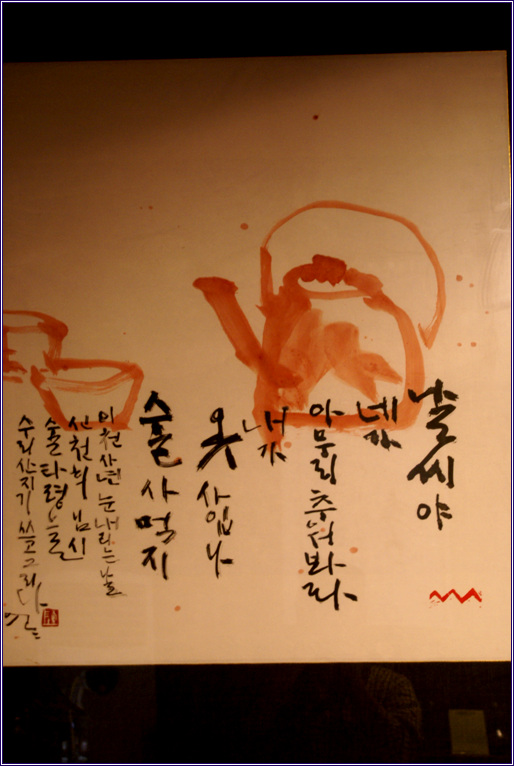 날씨야
네가
아무리 추워바라
내가
옷 사입나
술 사먹지
이천사년 눈 내리는 날
신천희 님 시
술타령을
수리산지기 쓰고 그리다